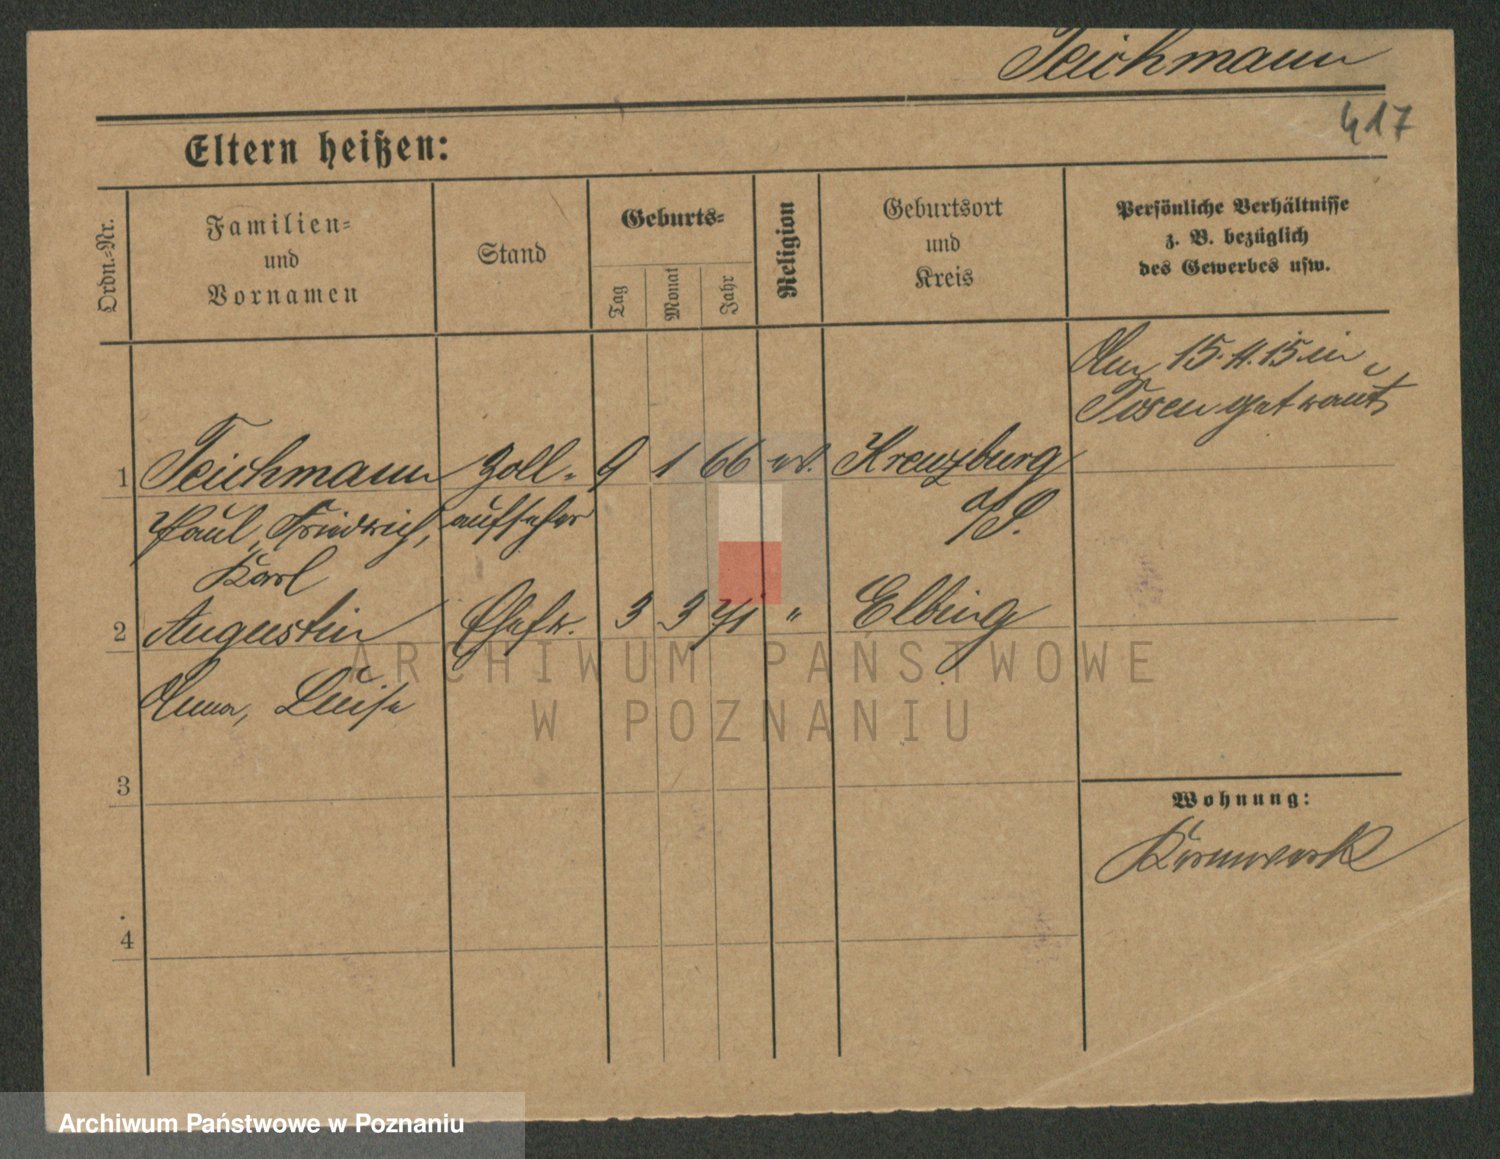 Teichmann
417
Eltern heißen:
Ordn.-Nr.
Familien-
und
Vornamen
Stand
Geburts-
Tag
Monat
Jahr
Religion
Geburtsort
und
Kreis
Persönliche Verhältnisse
z. B. bezüglich
des Gewerbes usw.
Am 15.4.15 in
Posen getraut
1 Teichmann Zoll- 9 1 66 ev. Kreuzburg
Paul, Friedrich, aufseher
Karl
2 Augustin Ehefr. 3 3 71 " Elbing
Anna, Luise
3
Wohnung:
4
ARCHIWUM PAŃSTWOWE
W POZNANIU
Archiwum Państwowe w Poznaniu